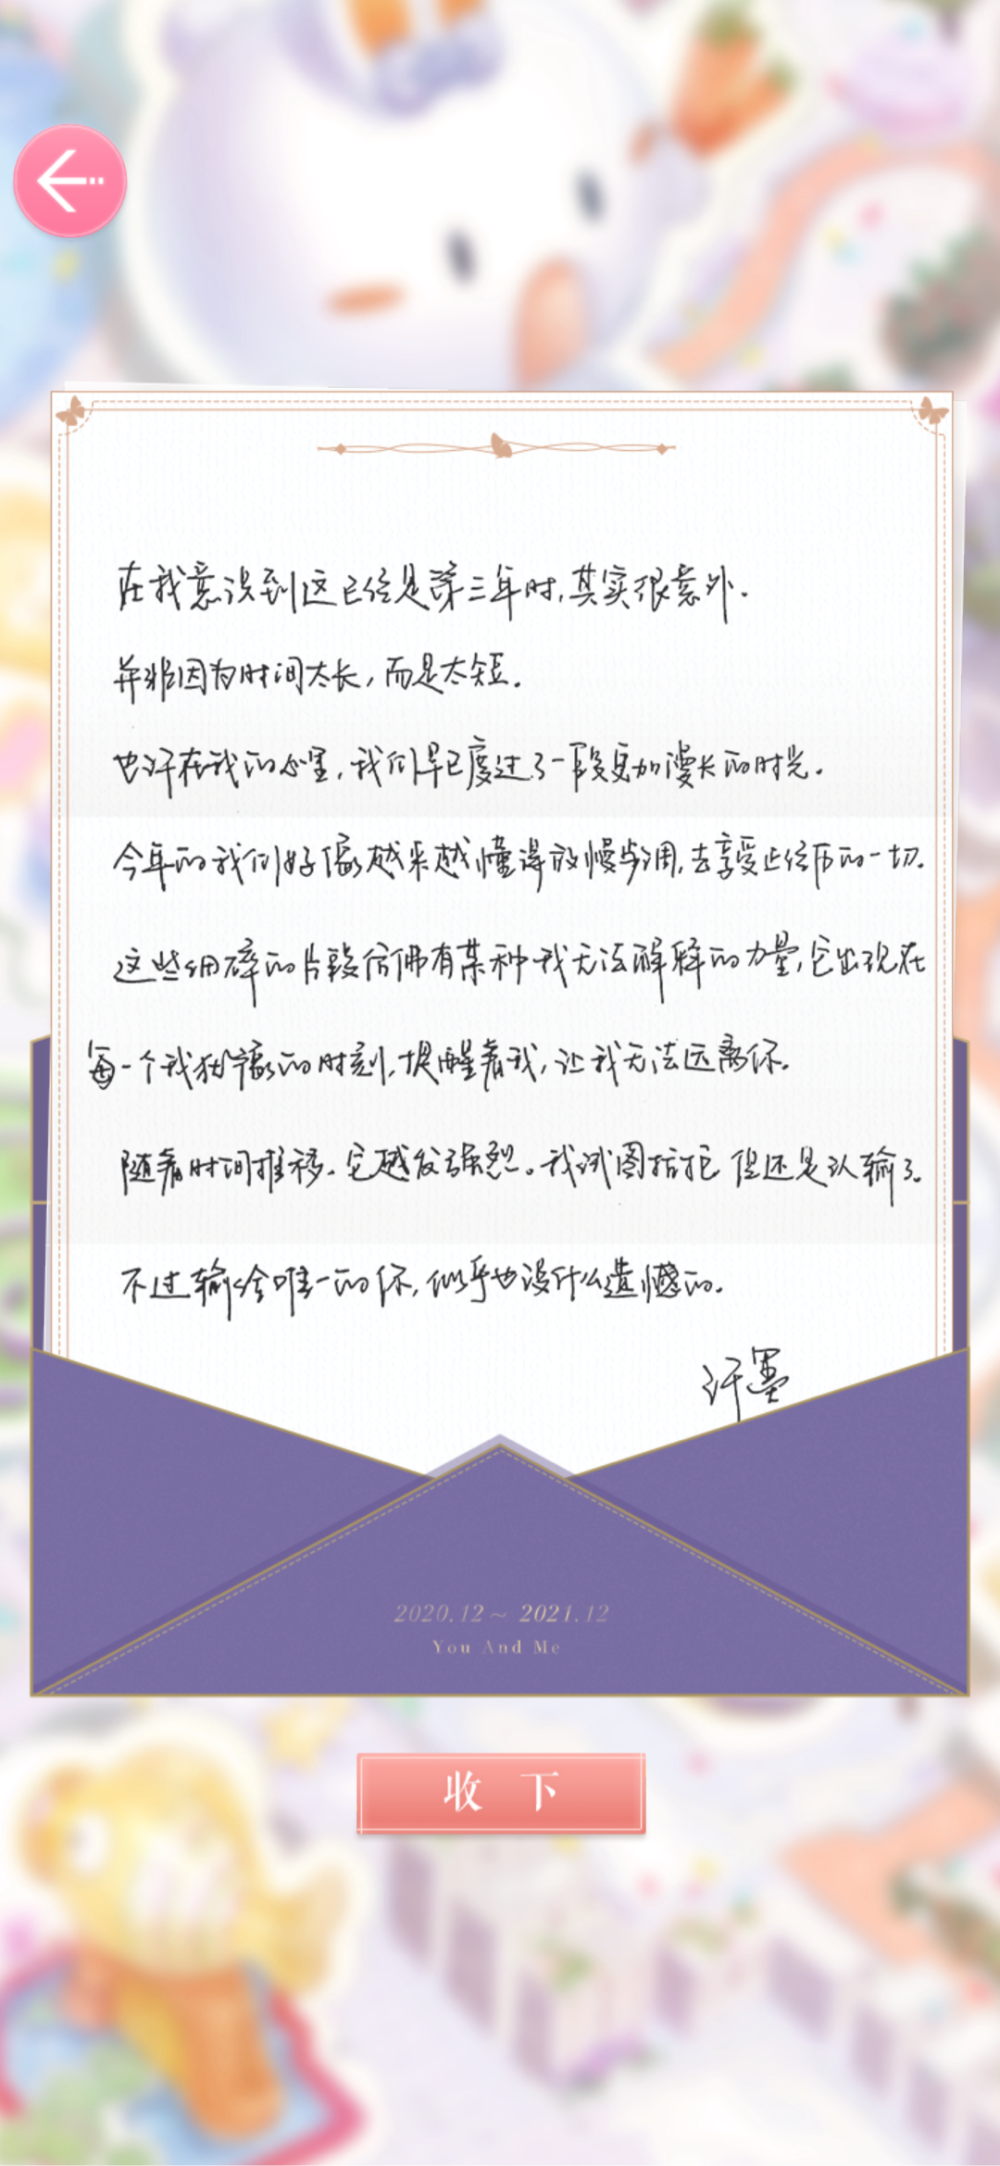 在我意识到这已经是第三年时，其实很意外。
并非因为时间太长，而是太短。
也许在我的心里，我们早已度过了一段更加漫长的时光。
今年的我们好像越来越懂得放慢步调，去享受正经历的一切。
这些细碎的片段仿佛有某种我无法解释的力量，它出现在
每一个我犹豫的时刻，提醒着我，让我无法远离你。
随着时间推移，它越发强烈。我试图抗拒 但还是认输了。
不过输给唯一的你，似乎也没什么遗憾的。
许墨
2020.12 ~ 2021.12
You And Me
收下